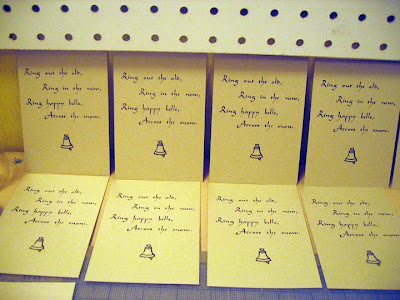 Ring out the old,
Ring in the new,
Ring happy bells,
Across the snow.
Ring out the old,
Ring in the new,
Ring happy bells,
Across the snow.
Ring out the old,
Ring in the new,
Ring happy bells,
Across the snow.
Ring out the old,
Ring in the new,
Ring happy bells,
Across the snow.
Ring out the old,
Ring in the new,
Ring happy bells,
Across the snow.
Ring out the old,
Ring in the new,
Ring happy bells,
Across the snow.
Ring out the old,
Ring in the new,
Ring happy bells,
Across the snow.
Ring out the old,
Ring in the new,
Ring happy bells,
Across the snow.